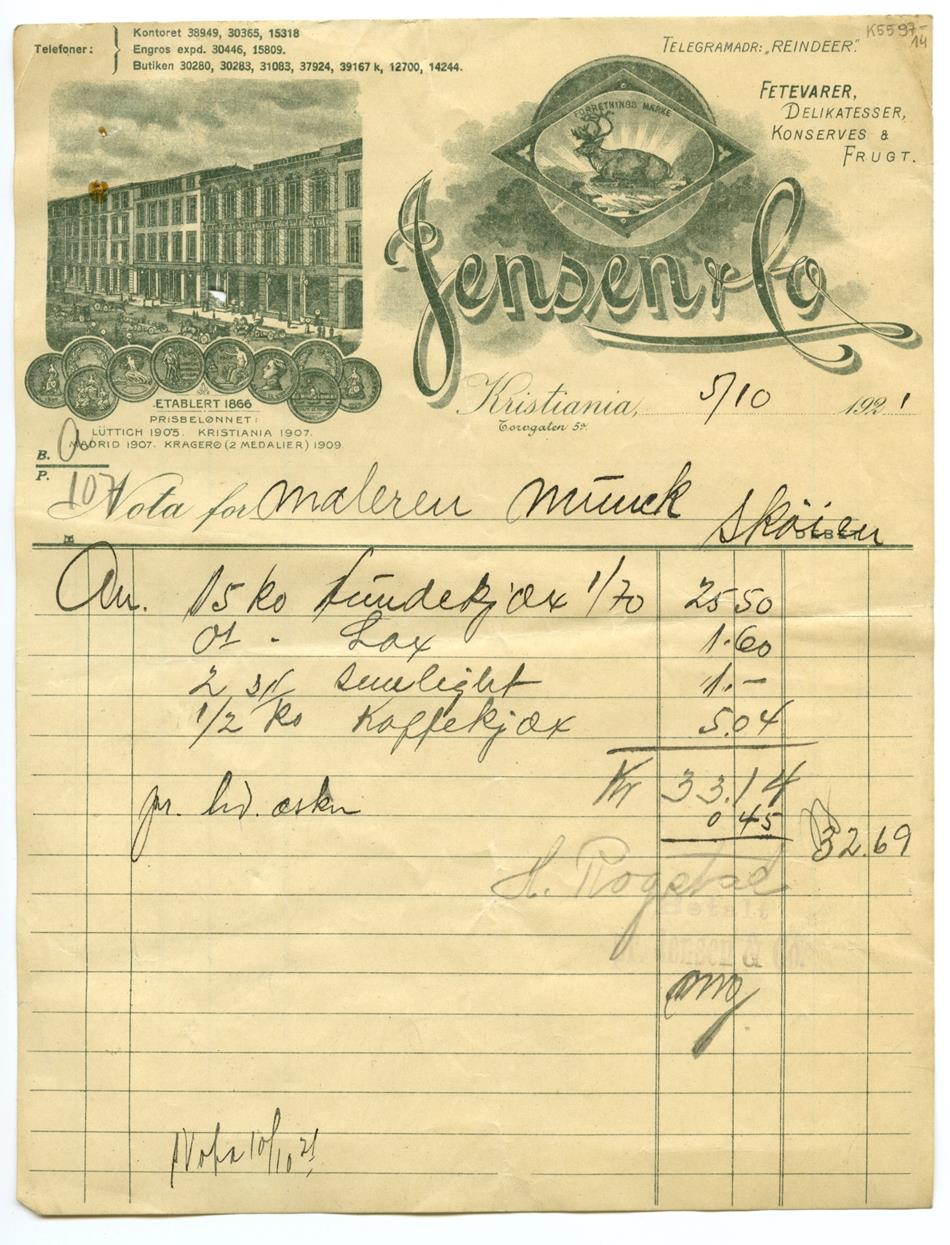 Telefoner:
Kontoret 38949, 30365, 15318
Engros expd. 30446, 15809.
Butiken 30280, 30283, 31083, 37924, 39167 k, 12700, 14244.
K5597-
14
TELEGRAMADR: „REINDEER".
FETEVARER,
DELIKATESSER,
KONSERVES &
FRUGT.
FORRETNINGS MÆRKE
Jensen & Co
ETABLERT 1866
PRISBELØNNET:
LÜTTICH 1905. KRISTIANIA 1907.
MADRID 1907. KRAGERØ (2 MEDALIER) 1909
Kristiania, 5/10 1921
Torvgaten 5a.
B.
P. 107
Nota for maleren Munck Skøien
DEBET
An. 15 ko hundekjæx 1/70 25 50
01 - Lax 1.60
2 st sunlight 1.-
1/2 ko Kaffekjæx 5.04
Kr 33.14
0 45
32.69
H. Rogstad
Betalt
Jensen & Co.
Nota 10/10 21